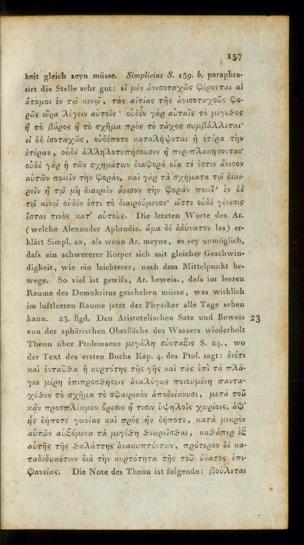 157
keit gleich seyn müsse. Simplicius S. 159. b. paraphra-
sirt die Stelle sehr gut: εἰ μὲν ἀνισοταχῶς φέρονται αἱ
ἄτομοι ἐν τῷ κενῷ, τὰς αἰτίας τῆς ἀνισοταχοῦς φο-
ρᾶς ὥρα λέγειν αὐτοῖς· οὐδὲν γὰρ αὐταῖς τὸ μέγεθος
ἢ τὸ βάρος ἢ τὸ σχῆμα πρὸς τὸ τάχος συμβάλλεται·
εἰ δὲ ἰσοταχῶς, οὐδέποτε καταλήψεται ἡ ἑτέρα τὴν
ἑτέραν, οὐδὲ ἀλληλοτυπήσουσιν ἢ περιπλακήσονται·
οὐδὲ γὰρ ἡ τῶν σχημάτων διαφορὰ οἵα τέ ἐστιν ἄνισον
αὐτῶν ποιεῖν τὴν φοράν, καὶ γὰρ τὰ σχήματα τῷ διαι-
ρεῖν ἢ τῷ μὴ διαιρεῖν ἄνισον τὴν φορὰν ποιεῖ· ἐν δὲ
τῷ κενῷ οὐδέν ἐστι τὸ διαιρούμενον· ὥστε οὐδὲ γένεσις
ἔσται τινὸς κατ' αὐτούς. Die letzten Worte des Ar.
(welche Alexander Aphrodis. ἅμα δὲ ἀδύνατον las) er-
klärt Simpl. so, als wenn Ar. meyne, es sey unmöglich,
daſs ein schwererer Körper sich mit gleicher Geschwin-
digkeit, wie ein leichterer, nach dem Mittelpunkt be-
wege. So viel ist gewiſs, Ar. beweis., daſs im leeren
Raume des Demokritus geschehen müsse, was wirklich
im luftleeren Raume jetzt der Physiker alle Tage sehen
kann. 23. flgd. Den Aristotelischen Satz und Beweis 23
von der sphärischen Oberfläche des Wassers wiederholt
Theon über Ptolemaeus μεγάλη σύνταξις S. 24., wo
der Text des ersten Buchs Kap. 4. des Ptol. sagt: διότι
καὶ ἐνταῦθα ἡ κυρτότης τῆς γῆς καὶ τὰς ἐπὶ τὰ πλά-
για μέρη ἐπιπροσθήσεις ἀναλόγως ποιουμένη πανταχό-
θεν τὸ σχῆμα τὸ σφαιρικὸν ἀποδείκνυσι, μετὰ τοῦ
κἂν προσπλέωμεν ὄρεσιν ἤ τισιν ὑψηλοῖς χωρίοις, ἀφ'
ἧς δήποτε γωνίας καὶ πρὸς ἣν δήποτε, κατὰ μικρὸν
αὐτῶν αὐξόμενα τὰ μεγέθη θεωρεῖσθαι, καθάπερ ἐξ
αὐτῆς τῆς θαλάττης ἀνακυπτόντων, πρότερον δὲ κα-
ταδεδυκότων διὰ τὴν κυρτότητα τῆς τοῦ ὕδατος ἐπι-
φανείας. Die Note des Theon ist folgende: βούλεται